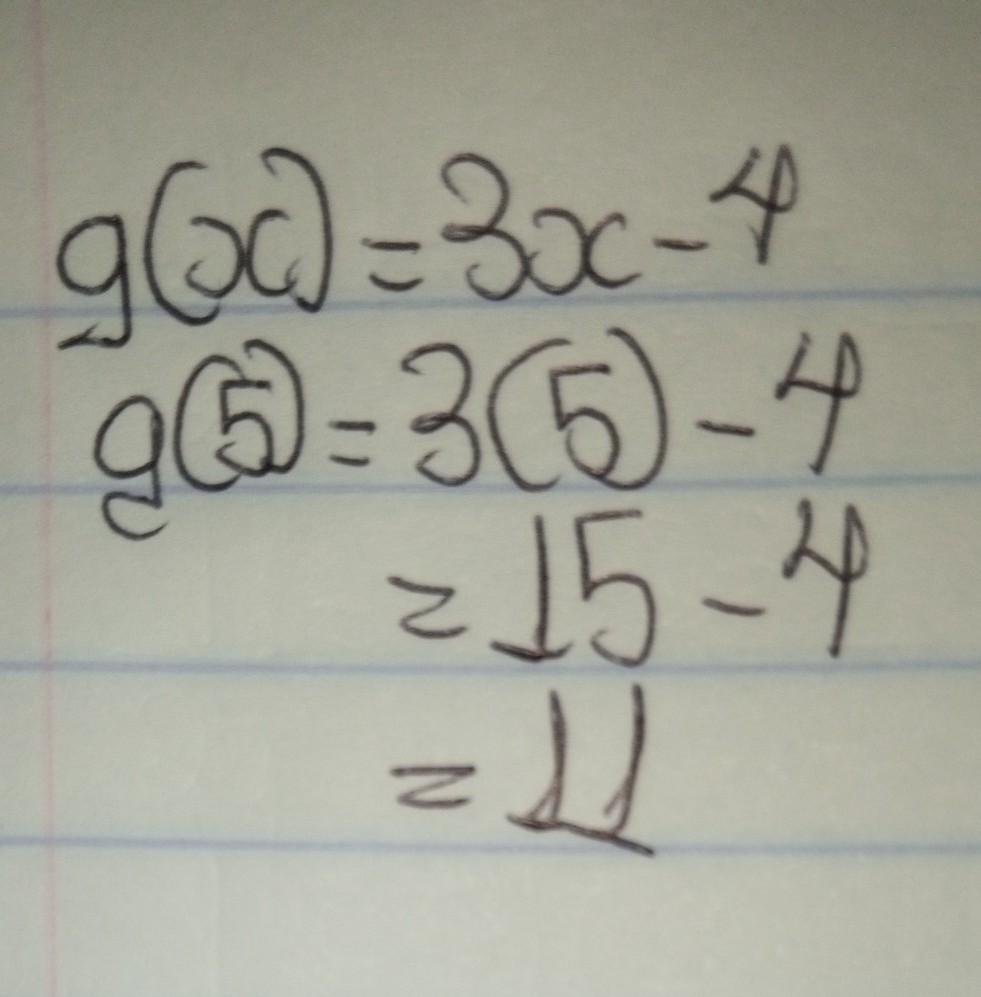 g(x) = 3x - 4
g(5) = 3(5) - 4
= 15 - 4
= 11